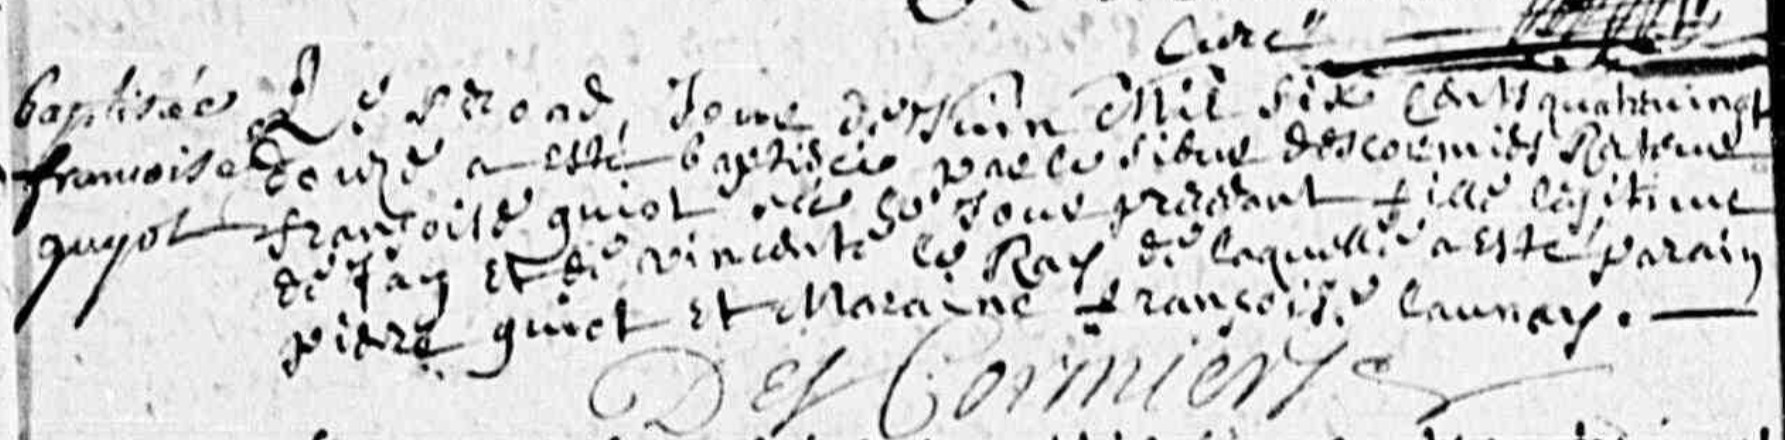 Curé
baptisée
francoise
guyot
Le second Jour de Juin Mil six Cents quatrevingt
douze a esté baptisée par le sieur descormiers
françoise guiot née le Jour precedant fille legitime
de Jan et de vincente le Ray de laquelle a esté parain
pierre guiot et Maraine françoise launay.
Des Cormiers